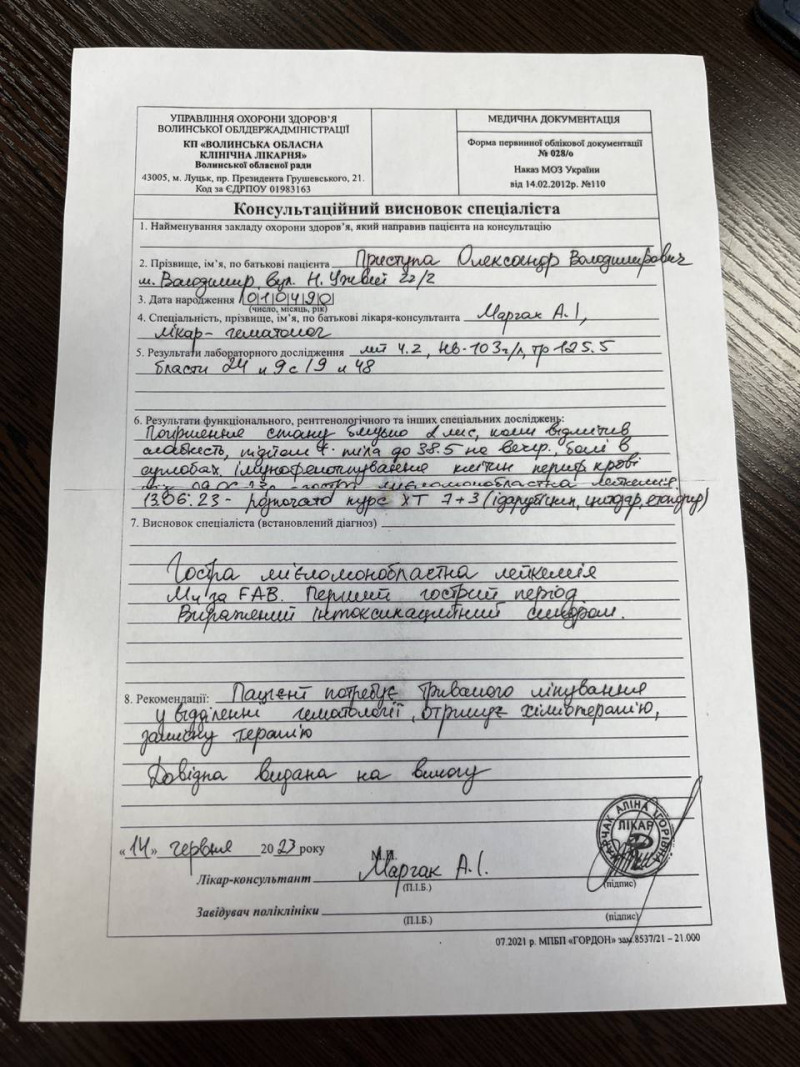 УПРАВЛІННЯ ОХОРОНИ ЗДОРОВ'Я
ВОЛИНСЬКОЇ ОБЛДЕРЖАДМІНІСТРАЦІЇ
КП «ВОЛИНСЬКА ОБЛАСНА
КЛІНІЧНА ЛІКАРНЯ»
Волинської обласної ради
43005, м. Луцьк, пр. Президента Грушевського, 21.
Код за ЄДРПОУ 01983163
МЕДИЧНА ДОКУМЕНТАЦІЯ
Форма первинної облікової документації
№ 028/о
Наказ МОЗ України
від 14.02.2012р. №110
Консультаційний висновок спеціаліста
1. Найменування закладу охорони здоров'я, який направив пацієнта на консультацію
2. Прізвище, ім'я, по батькові пацієнта Приступа Олександр Володимирович
м. Володимир, вул. Н. Ужвій 22/2
3. Дата народження 010490
(число, місяць, рік)
4. Спеціальність, прізвище, ім'я, по батькові лікаря-консультанта Марчак А.І,
лікар-гематолог
5. Результати лабораторного дослідження лей 4.2, Нв-103г/л, тр 125.5
бласти 24 п 9 с 19 л 48
6. Результати функціонального, рентгенологічного та інших спеціальних досліджень:
Погіршення стану близько 2 міс, коли відмітив
слабкість, підйом t° тіла до 38.5 на вечір, болі в
суглобах. Імунофенотипування клітин периф крові
гостра мієломонобластна лейкемія
13.06.23 - розпочато курс ХТ 7+3 (ідарубіцин, цитозар,
7. Висновок спеціаліста (встановлений діагноз)
Гостра мієломонобластна лейкемія
М4 за FAB. Перший гострий період
Виражений інтоксикаційний синдром.
8. Рекомендації: Пацієнт потребує тривалого лікування
у відділенні гематології, отримує хіміотерапію,
замісну терапію
Довідка видана на вимогу
«14» червня 2023 року
М.П.
Лікар-консультант Марчак А.І.
(П.І.Б.) (підпис)
МАРЧАК АЛІНА ІГОРІВНА
ЛІКАР
Завідувач поліклініки
(П.І.Б.) (підпис)
07.2021 р. МПБП «ГОРДОН» зам.8537/21 – 21.000